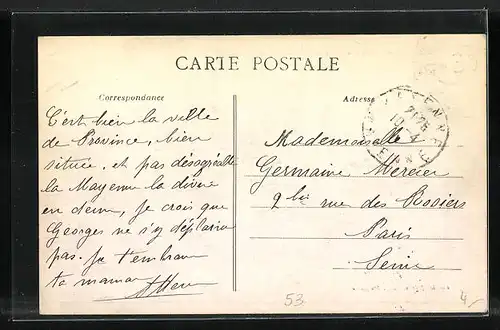 CARTE POSTALE
Correspondance
Adresse
C'est bien la ville
de Province, bien
située, et pas désagréable
la Mayenne la divise
en deux, je crois que
Georges ne s'y déplaira
pas. Je t'embrasse
ta maman
Mademoiselle
Germaine Mercier
9 bis rue des Rosiers
Paris
Seine
53